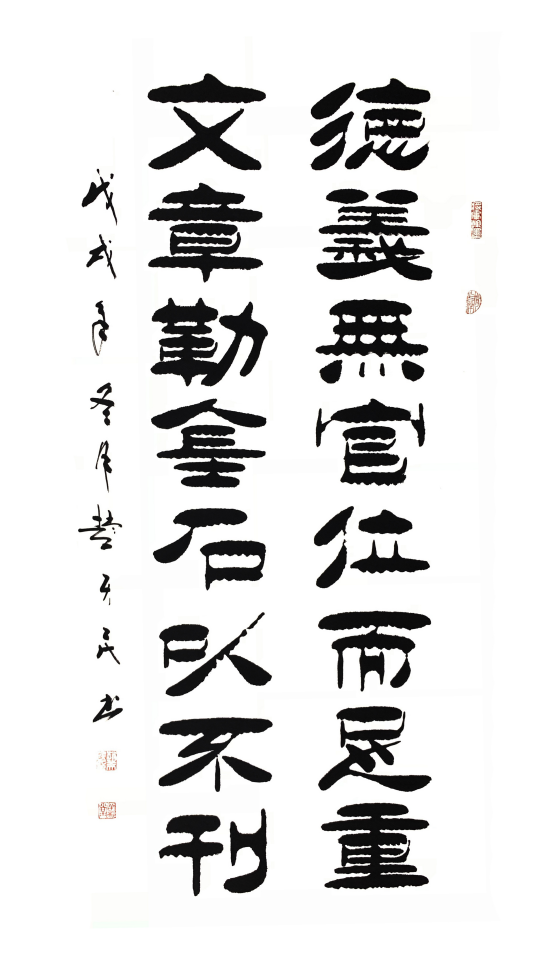 德義無官位而足重
文章勒金石以不刊
戊戌年冬月天民书